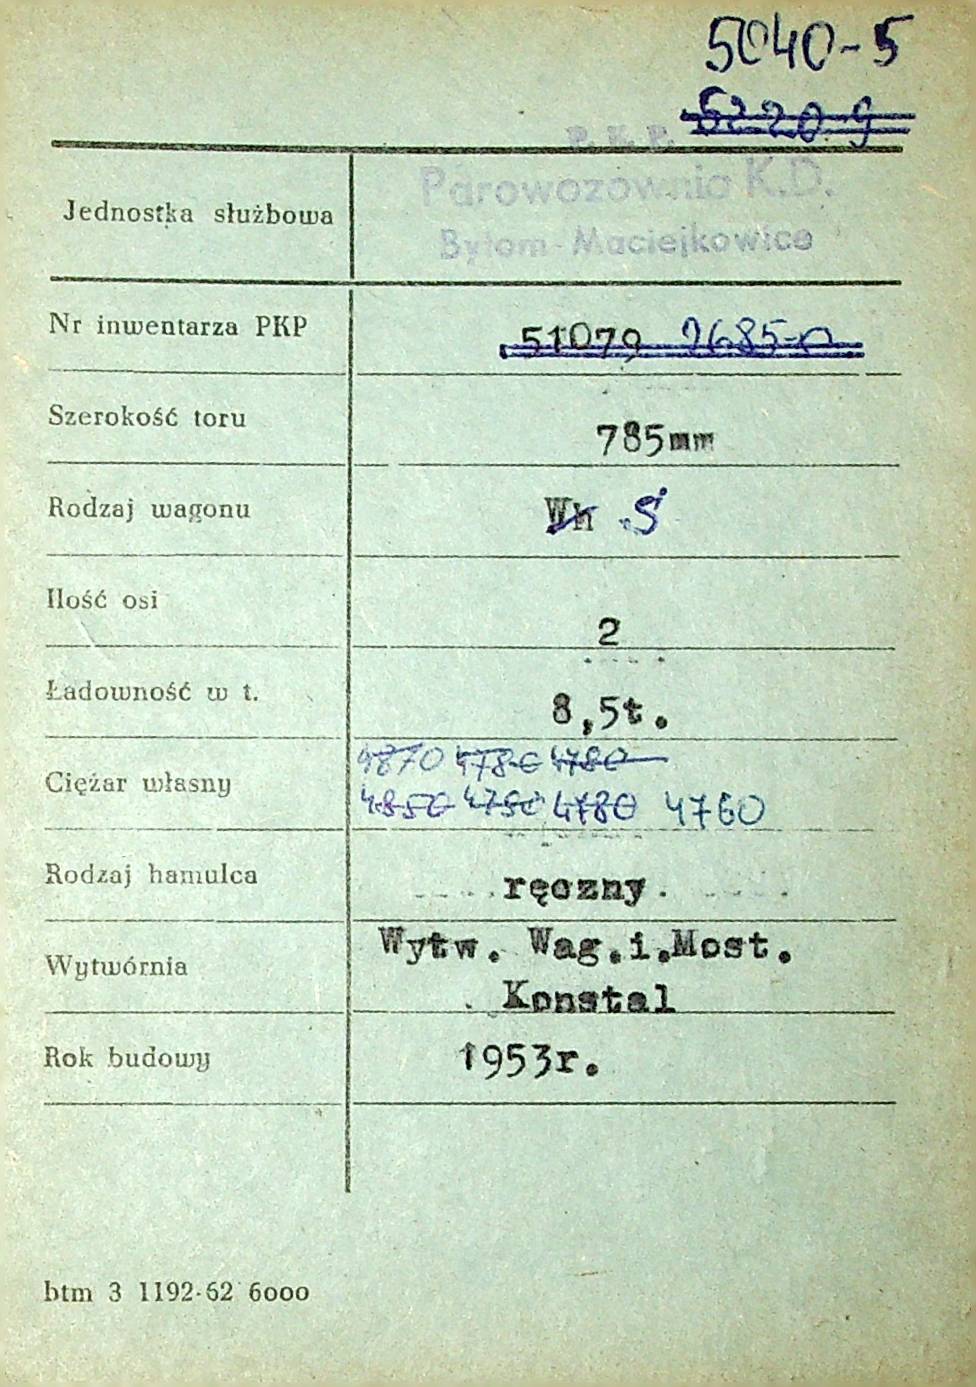 5040-5
6220-9
P.K.P.
Jednostka służbowa Parowozownia K.D.
Bytom-Maciejkowice
Nr inwentarza PKP 51079 2685-n
Szerokość toru 785mm
Rodzaj wagonu Wh S
Ilość osi 2
Ładowność w t. 8,5t.
4870 4780 4780
Ciężar własny 4850 4790 4780 4760
Rodzaj hamulca ręczny.
Wytw. Wag.i.Most.
Wytwórnia Konstal
Rok budowy 1953r.
btm 3 1192-62 6000